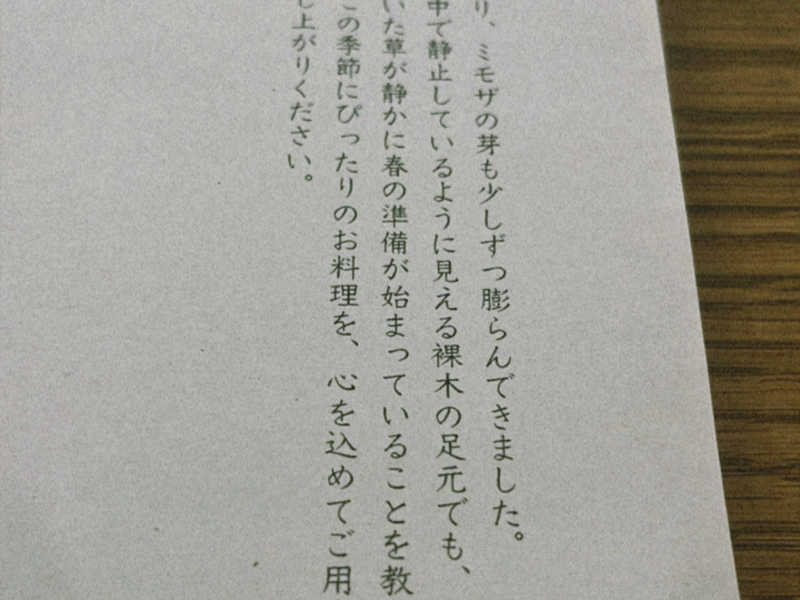 り、ミモザの芽も少しずつ膨らんできました。
中で静止しているように見える裸木の足元でも、
いた草が静かに春の準備が始まっていることを教
この季節にぴったりのお料理を、心を込めてご用
し上がりください。